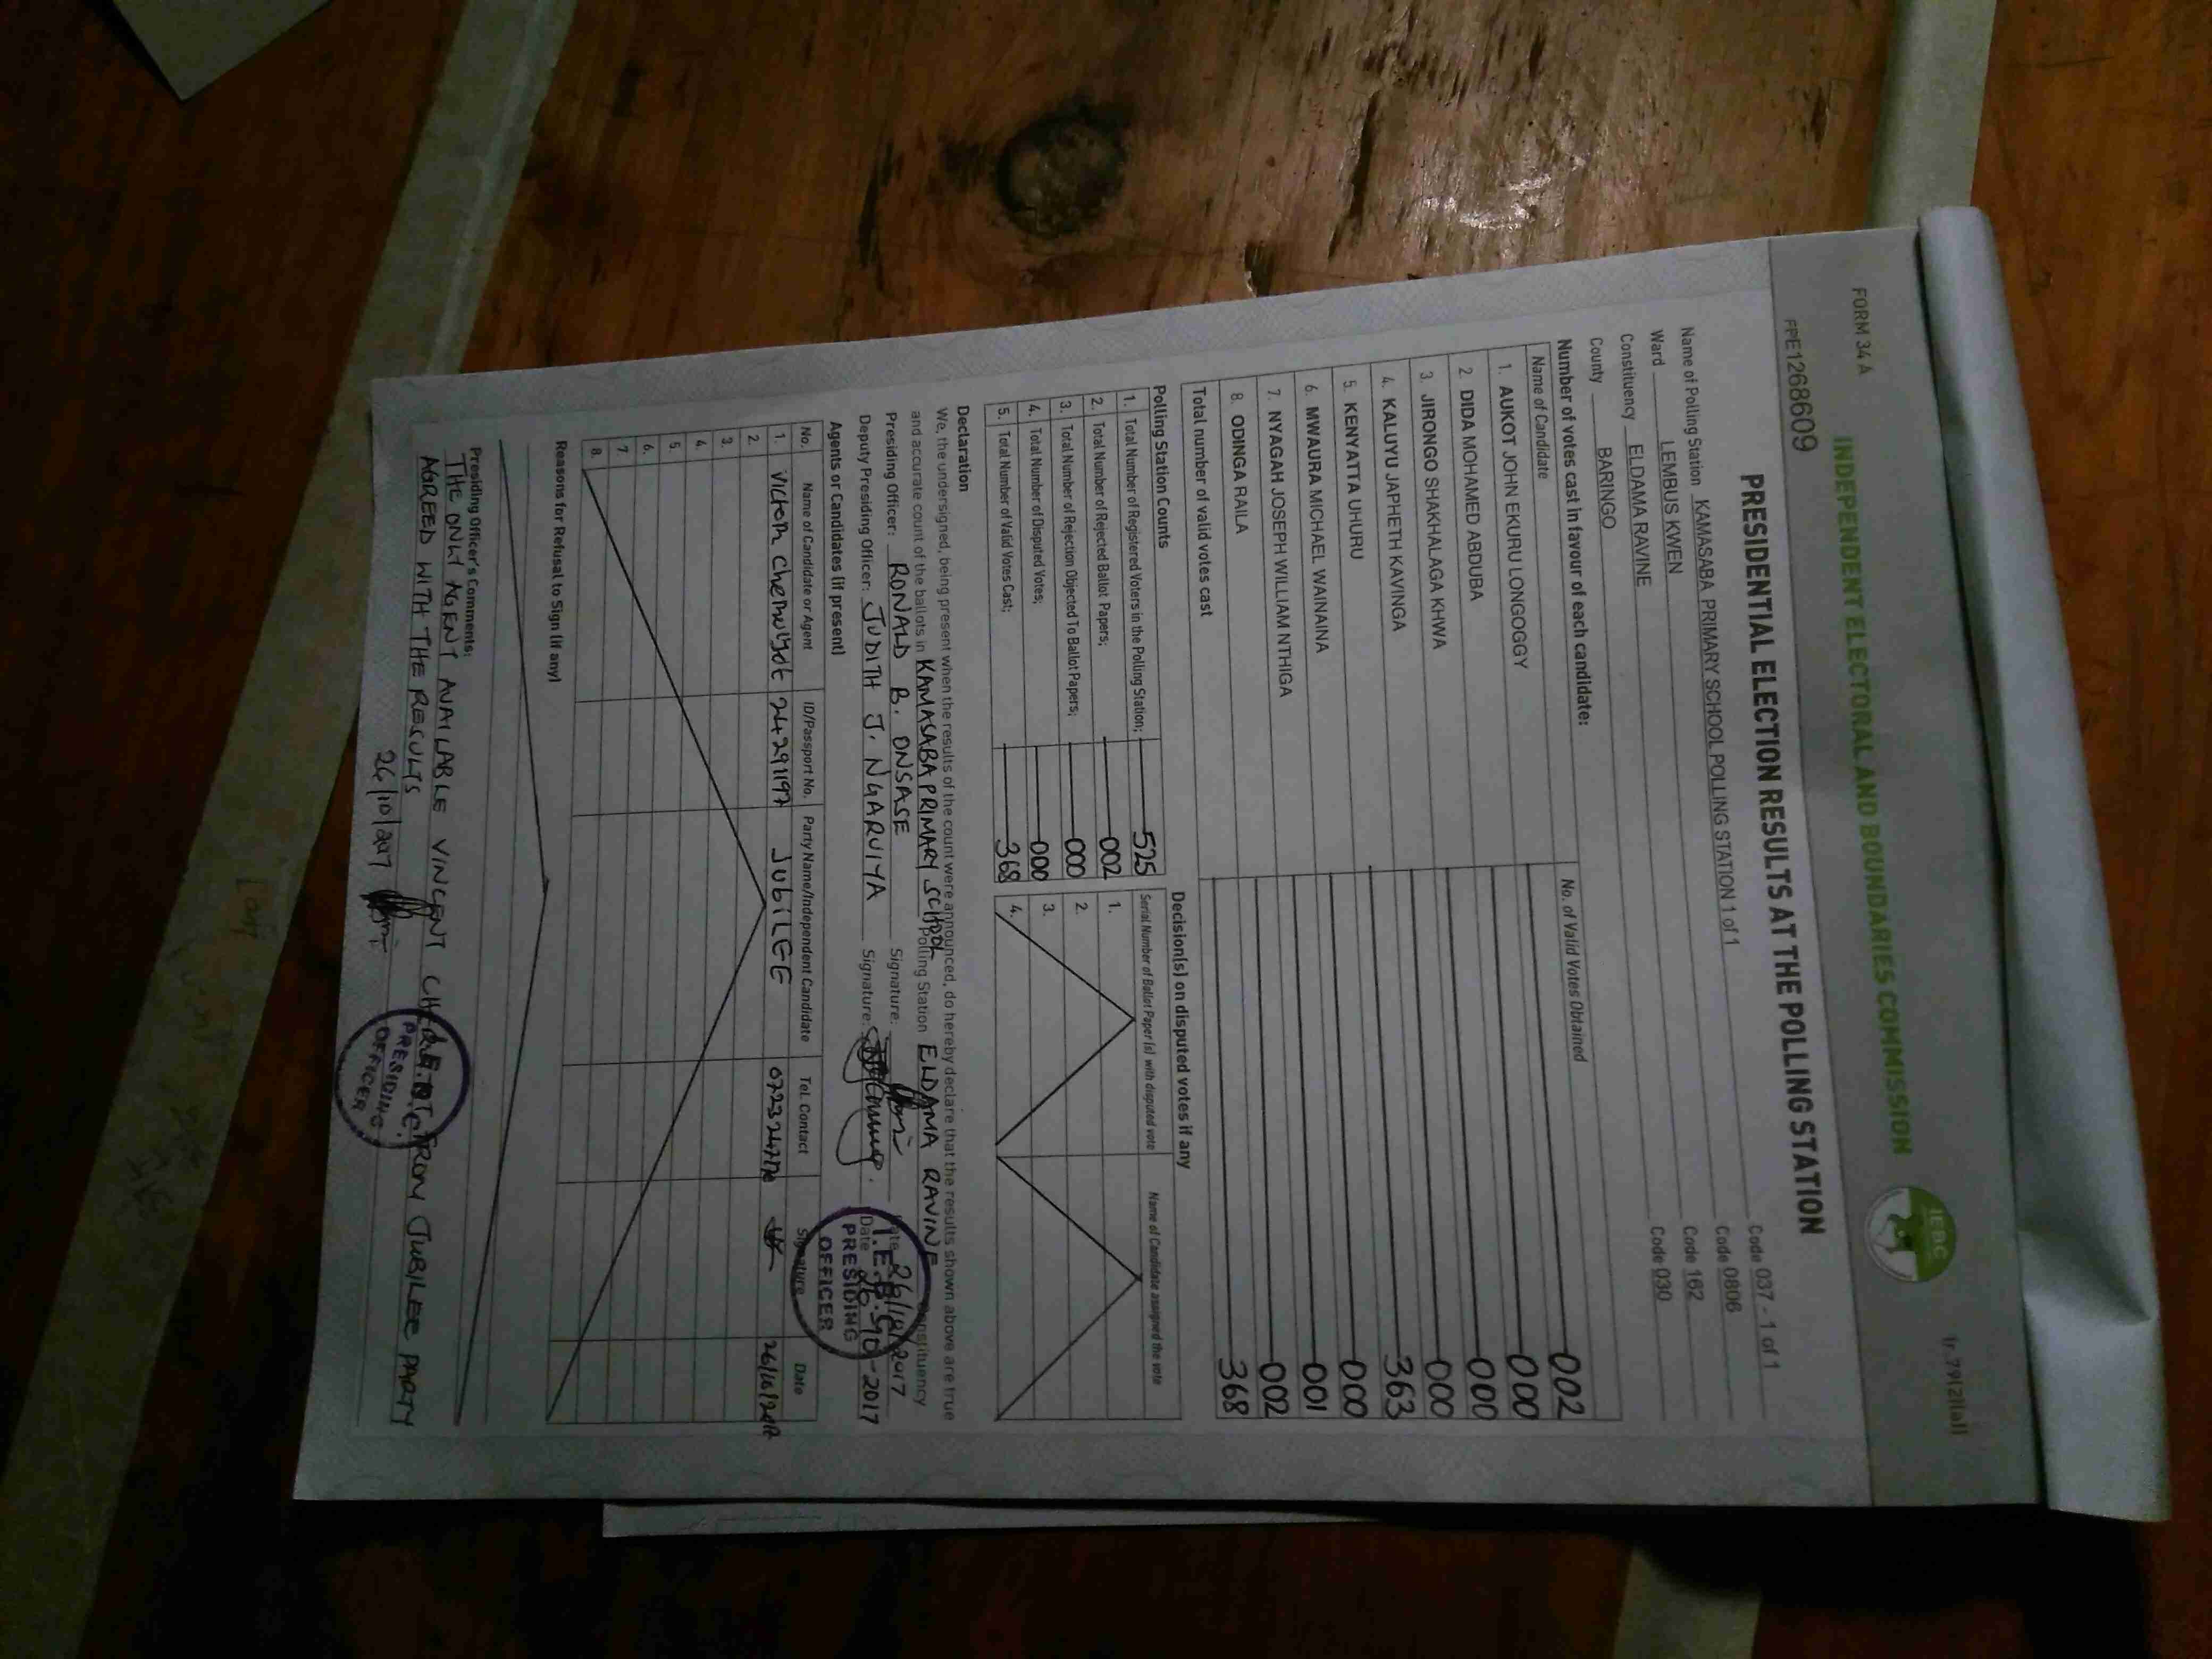 FORM 34 A
INDEPENDENT ELECTORAL AND BOUNDARIES COMMISSION
IEBC
r. 79(2)(a)
PPE1268609
PRESIDENTIAL ELECTION RESULTS AT THE POLLING STATION
Name of Polling Station KAMASABA PRIMARY SCHOOL POLLING STATION 1 of 1 Code 037 - 1 of 1
Ward LEMBUS KWEN Code 0806
Constituency ELDAMA RAVINE Code 162
County BARINGO Code 030
Number of votes cast in favour of each candidate:
Name of Candidate No. of Valid Votes Obtained
1. AUKOT JOHN EKURU LONGOGGY 002
2. DIDA MOHAMED ABDUBA 000
3. JIRONGO SHAKHALAGA KHWA 000
4. KALUYU JAPHETH KAVINGA 000
5. KENYATTA UHURU 363
6. MWAURA MICHAEL WAINAINA 000
7. NYAGAH JOSEPH WILLIAM NTHIGA 001
8. ODINGA RAILA 002
Total number of valid votes cast 368
Polling Station Counts
1. Total Number of Registered Voters in the Polling Station; 525
2. Total Number of Rejected Ballot Papers; 002
3. Total Number of Rejection Objected To Ballot Papers; 000
4. Total Number of Disputed Votes; 000
5. Total Number of Valid Votes Cast; 368
Decision(s) on disputed votes if any
Serial Number of Ballot Paper (s) with disputed vote Name of Candidate assigned the vote
1.
2.
3.
4.
Declaration
We, the undersigned, being present when the results of the count were announced, do hereby declare that the results shown above are true
and accurate count of the ballots in KAMASABA PRIMARY SCHOOL Polling Station ELDAMA RAVINE Constituency
Presiding Officer: RONALD B. ONSASE Signature: Date 26/10/2017
Deputy Presiding Officer: JUDITH J. NGARUIYA Signature: Date 26-10-2017
I.E.B.C.
PRESIDING
OFFICER
Agents or Candidates (if present)
No. Name of Candidate or Agent ID/Passport No. Party Name/Independent Candidate Tel. Contact Signature Date
1. Chemuigut 24291197 JubiLEE 26/10/2017
2.
3.
4.
5.
6.
7.
8.
Reasons for Refusal to Sign (if any)
Presiding Officer's Comments:
THE ONLY AGENT AVAILABLE VINCENT FROM JUBILEE PARTY
AGREED WITH THE RESULTS
26/10/2017
I.E.B.C.
PRESIDING
OFFICER